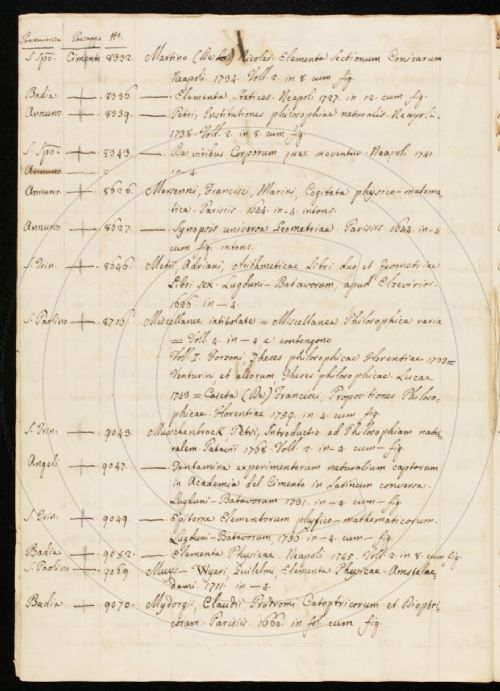 Provenienza Passaggio N.o
S. Spo. Ciment. 8332. Martino (De) Nicolai. Elementa Sectionum Conicarum
Neapoli. 1734. Voll. 2. in 8. cum fig.
Badia. 8336. — Elementa Statices. Neapoli. 1727. in 12. cum fig.
Annunz. 8339. — Petri, Institutiones philosophiae naturalis. Neapoli.
1738. Voll. 2. in 8. cum fig.
S. Spo. 8343. — De viribus Corporum quae moventur. Neapoli. 1741
Annunz. in-4.
Annunz. 8626. Mersenni, Francisci, Marini, Cogitata physico-matema-
tica. Parisiis. 1644. in-4. intons.
Annunz. 8627. — Synopsis universa Geometriae. Parisiis 1644. in-4
cum fig. intons.
S. Trin. 8646. Metii, Adriani, Arithmeticae Libri duo, et Geometriae
Libri sex. Lugduni-Batavorum, apud Elzevirios.
in-4.
S. Paolino Miscellanee intitolate = Miscellanea Philosophica varia
= Voll. 4. in-4 e contengono
Voll. I. theses philosophicae Florentiae 1733=
Venturini et aliorum, Theses philosophicae. Lucae
1743 = Caseta (De) Francisci, Propositiones Philoso-
phicae. Florentiae 1759. in 4. cum fig.
S. Trin. 9043. Musschenbroek, Petri, Introductio ad Philosophiam natu-
ralem. Patavii 1768. Voll. 2. in-4. cum fig.
Angeli 9047. — Tentamina experimentorum naturalium captorum
in Academia del Cimento in Latinum conversa.
Lugduni-Batavorum 1731. in-4. cum fig
S. Trin. 9049. — Epitome Elementorum physico-mathematicorum.
Lugduni-Batavorum, in-4. cum fig.
Badia — Elementa Physicae. Neapoli. 1745. Voll. 2. in 8. cum fig.
S. Paolino. 9069. Muys Wyeri, Guilelmi, Elementa Physicae. Amstelae-
dami. 1711. in-4.
Badia. 9070. Mydorgii, Claudii Prodromi Catoptricorum et Dioptri-
corum. Parisiis. 1660. in fol. cum fig.